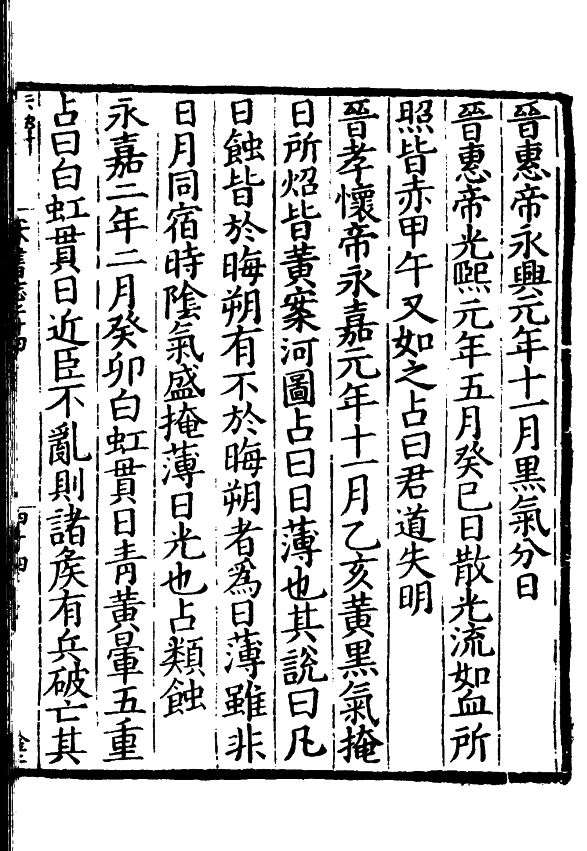 晉惠帝永興元年十一月黑氣分日
晉惠帝光熙元年五月癸巳日散光流如血所
照皆赤甲午又如之占曰君道失明
晉孝懷帝永嘉元年十一月乙亥黃黑氣掩
日所炤皆黃案河圖占曰日薄也其說曰凡
日蝕皆於晦朔有不於晦朔者為日薄雖非
日月同宿時陰氣盛掩薄日光也占類蝕
永嘉二年二月癸卯白虹貫日青黃暈五重
占曰白虹貫日近臣不亂則諸矦有兵破亡其